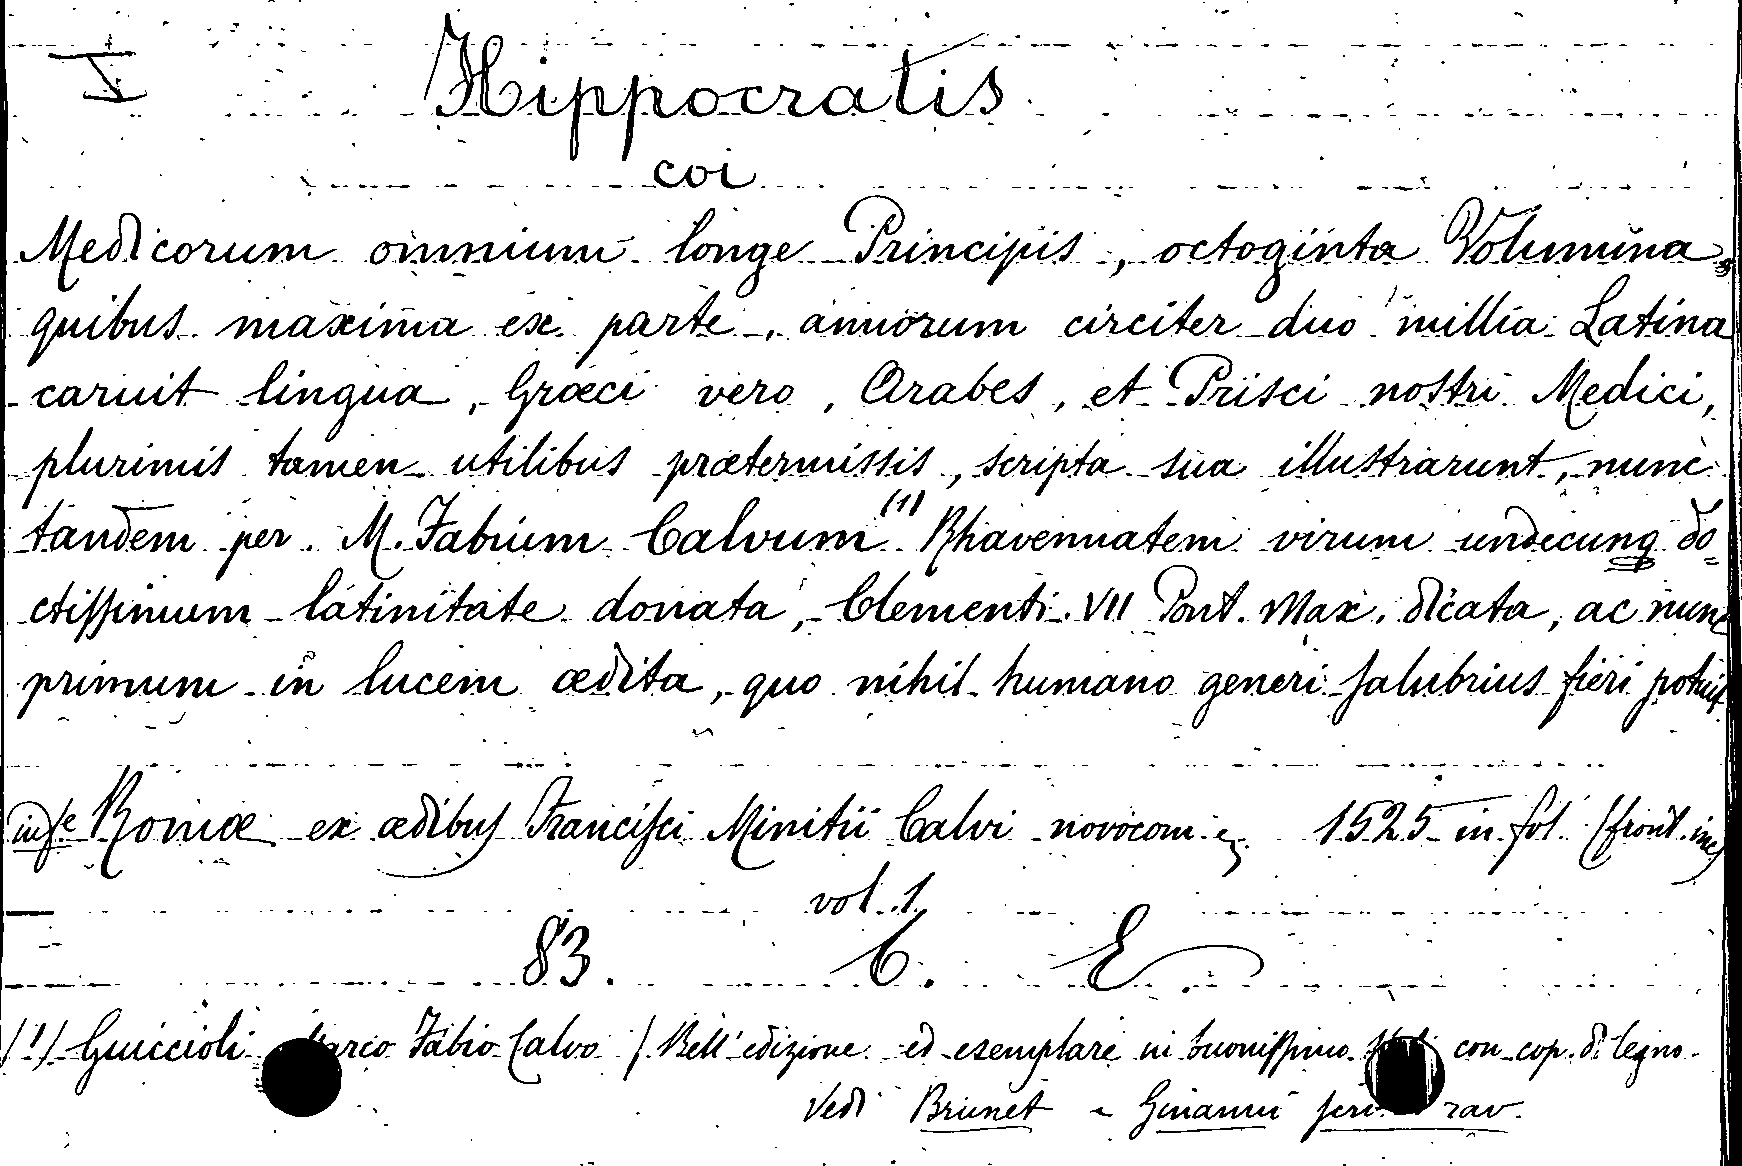 I
Hippocratis
coi
Medicorum omnium longe Principis, octoginta Volumina,
quibus maxima ex parte, annorum circiter duo millia Latina
caruit lingua, Græci vero, Arabes, et Prisci nostri Medici,
plurimis tamen utilibus prætermissis, scripta sua illustrarunt, nunc
tandem per M. Fabium Calvum (1) Rhavennatem virum undecunq do=
ctissimum latinitate donata, Clementi VII Pont. Max. dicata, ac nunc
primum in lucem ædita, quo nihil humano generi salubrius fieri potuit
inf.e Romæ ex ædibus Francisci Minitii Calvi novocom. 1525 in fol. (front. inc)
vol. 1
83. C. E.
(1) Guiccioli Marco Fabio Calvo / Bell' edizione ed esemplare in buonissimo con cop. di legno.
Vedi Brunet e Ginanni rav.